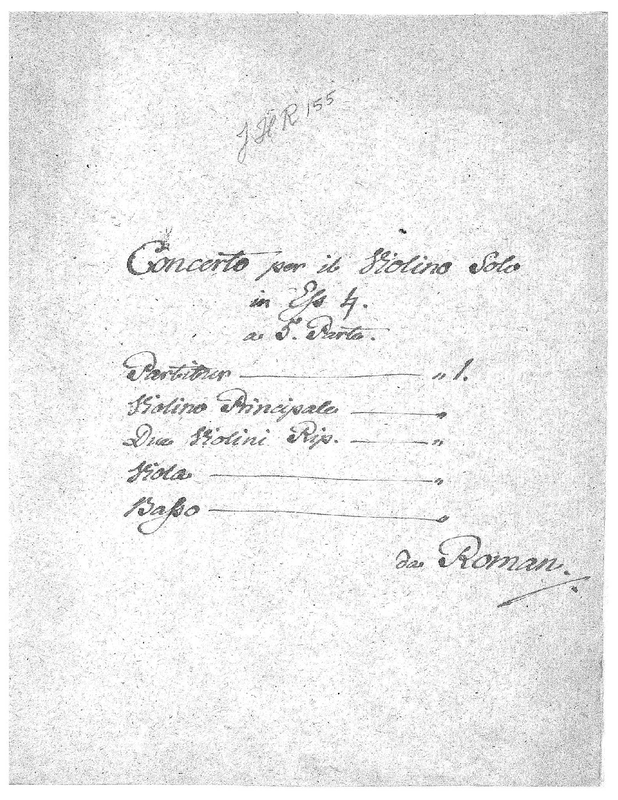 JHR 155
Concerto per il Violino Solo
in Eſs ♮.
a 5. Parte.
Partitur — „ 1.
Violino Principale — „
Due Violini Rip. — „
Viola — „
Baſso — „
da Roman.